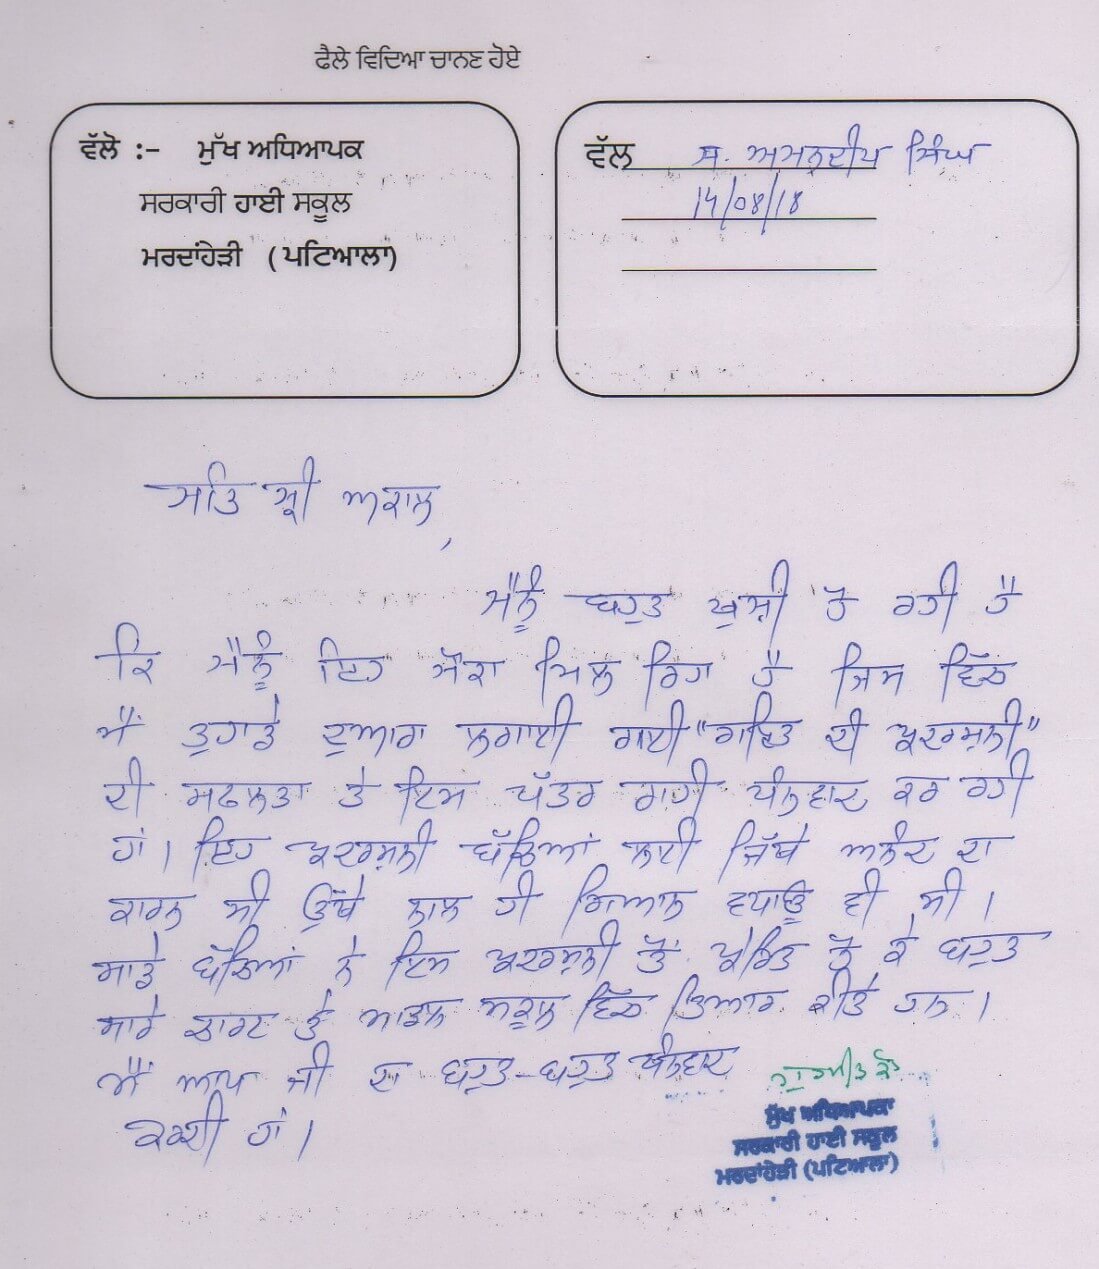 ਫੈਲੇ ਵਿਦਿਆ ਚਾਨਣ ਹੋਏ
ਵੱਲੋ :– ਮੁੱਖ ਅਧਿਆਪਕ
ਸਰਕਾਰੀ ਹਾਈ ਸਕੂਲ
ਮਰਦਾਂਹੇੜੀ (ਪਟਿਆਲਾ)
ਵੱਲ ਸ. ਅਮਨਦੀਪ ਸਿੰਘ
14/08/18
ਸਤਿ ਸ਼੍ਰੀ ਅਕਾਲ,
ਮੈਨੂੰ ਬਹੁਤ ਖੁਸ਼ੀ ਹੋ ਰਹੀ ਹੈ
ਕਿ ਮੈਨੂੰ ਇਹ ਮੌਕਾ ਮਿਲ ਰਿਹਾ ਹੈ ਜਿਸ ਵਿੱਚ
ਮੈਂ ਤੁਹਾਡੇ ਦੁਆਰਾ ਲਗਾਈ ਗਈ "ਗਣਿਤ ਦੀ ਪ੍ਰਦਰਸ਼ਨੀ"
ਦੀ ਸਫਲਤਾ ਤੇ ਇਸ ਪੱਤਰ ਰਾਹੀ ਧੰਨਵਾਦ ਕਰ ਰਹੀ
ਹਾਂ। ਇਹ ਪ੍ਰਦਰਸ਼ਨੀ ਬੱਚਿਆਂ ਲਈ ਜਿੱਥੇ ਅਨੰਦ ਦਾ
ਕਾਰਨ ਸੀ ਉੱਥੇ ਨਾਲ ਹੀ ਗਿਆਨ ਵਧਾਊ ਵੀ ਸੀ।
ਸਾਡੇ ਬੱਚਿਆਂ ਨੇ ਇਸ ਪ੍ਰਦਰਸ਼ਨੀ ਤੋਂ ਪ੍ਰੇਰਿਤ ਹੋ ਕੇ ਬਹੁਤ
ਸਾਰੇ ਚਾਰਟ ਤੇ ਮਾਡਲ ਸਕੂਲ ਵਿੱਚ ਤਿਆਰ ਕੀਤੇ ਹਨ।
ਮੈਂ ਆਪ ਜੀ ਦਾ ਬਹੁਤ-ਬਹੁਤ ਧੰਨਵਾਦ
ਕਰਦੀ ਹਾਂ।
ਮੁੱਖ ਅਧਿਆਪਕਾ
ਸਰਕਾਰੀ ਹਾਈ ਸਕੂਲ
ਮਰਦਾਂਹੇੜੀ (ਪਟਿਆਲਾ)